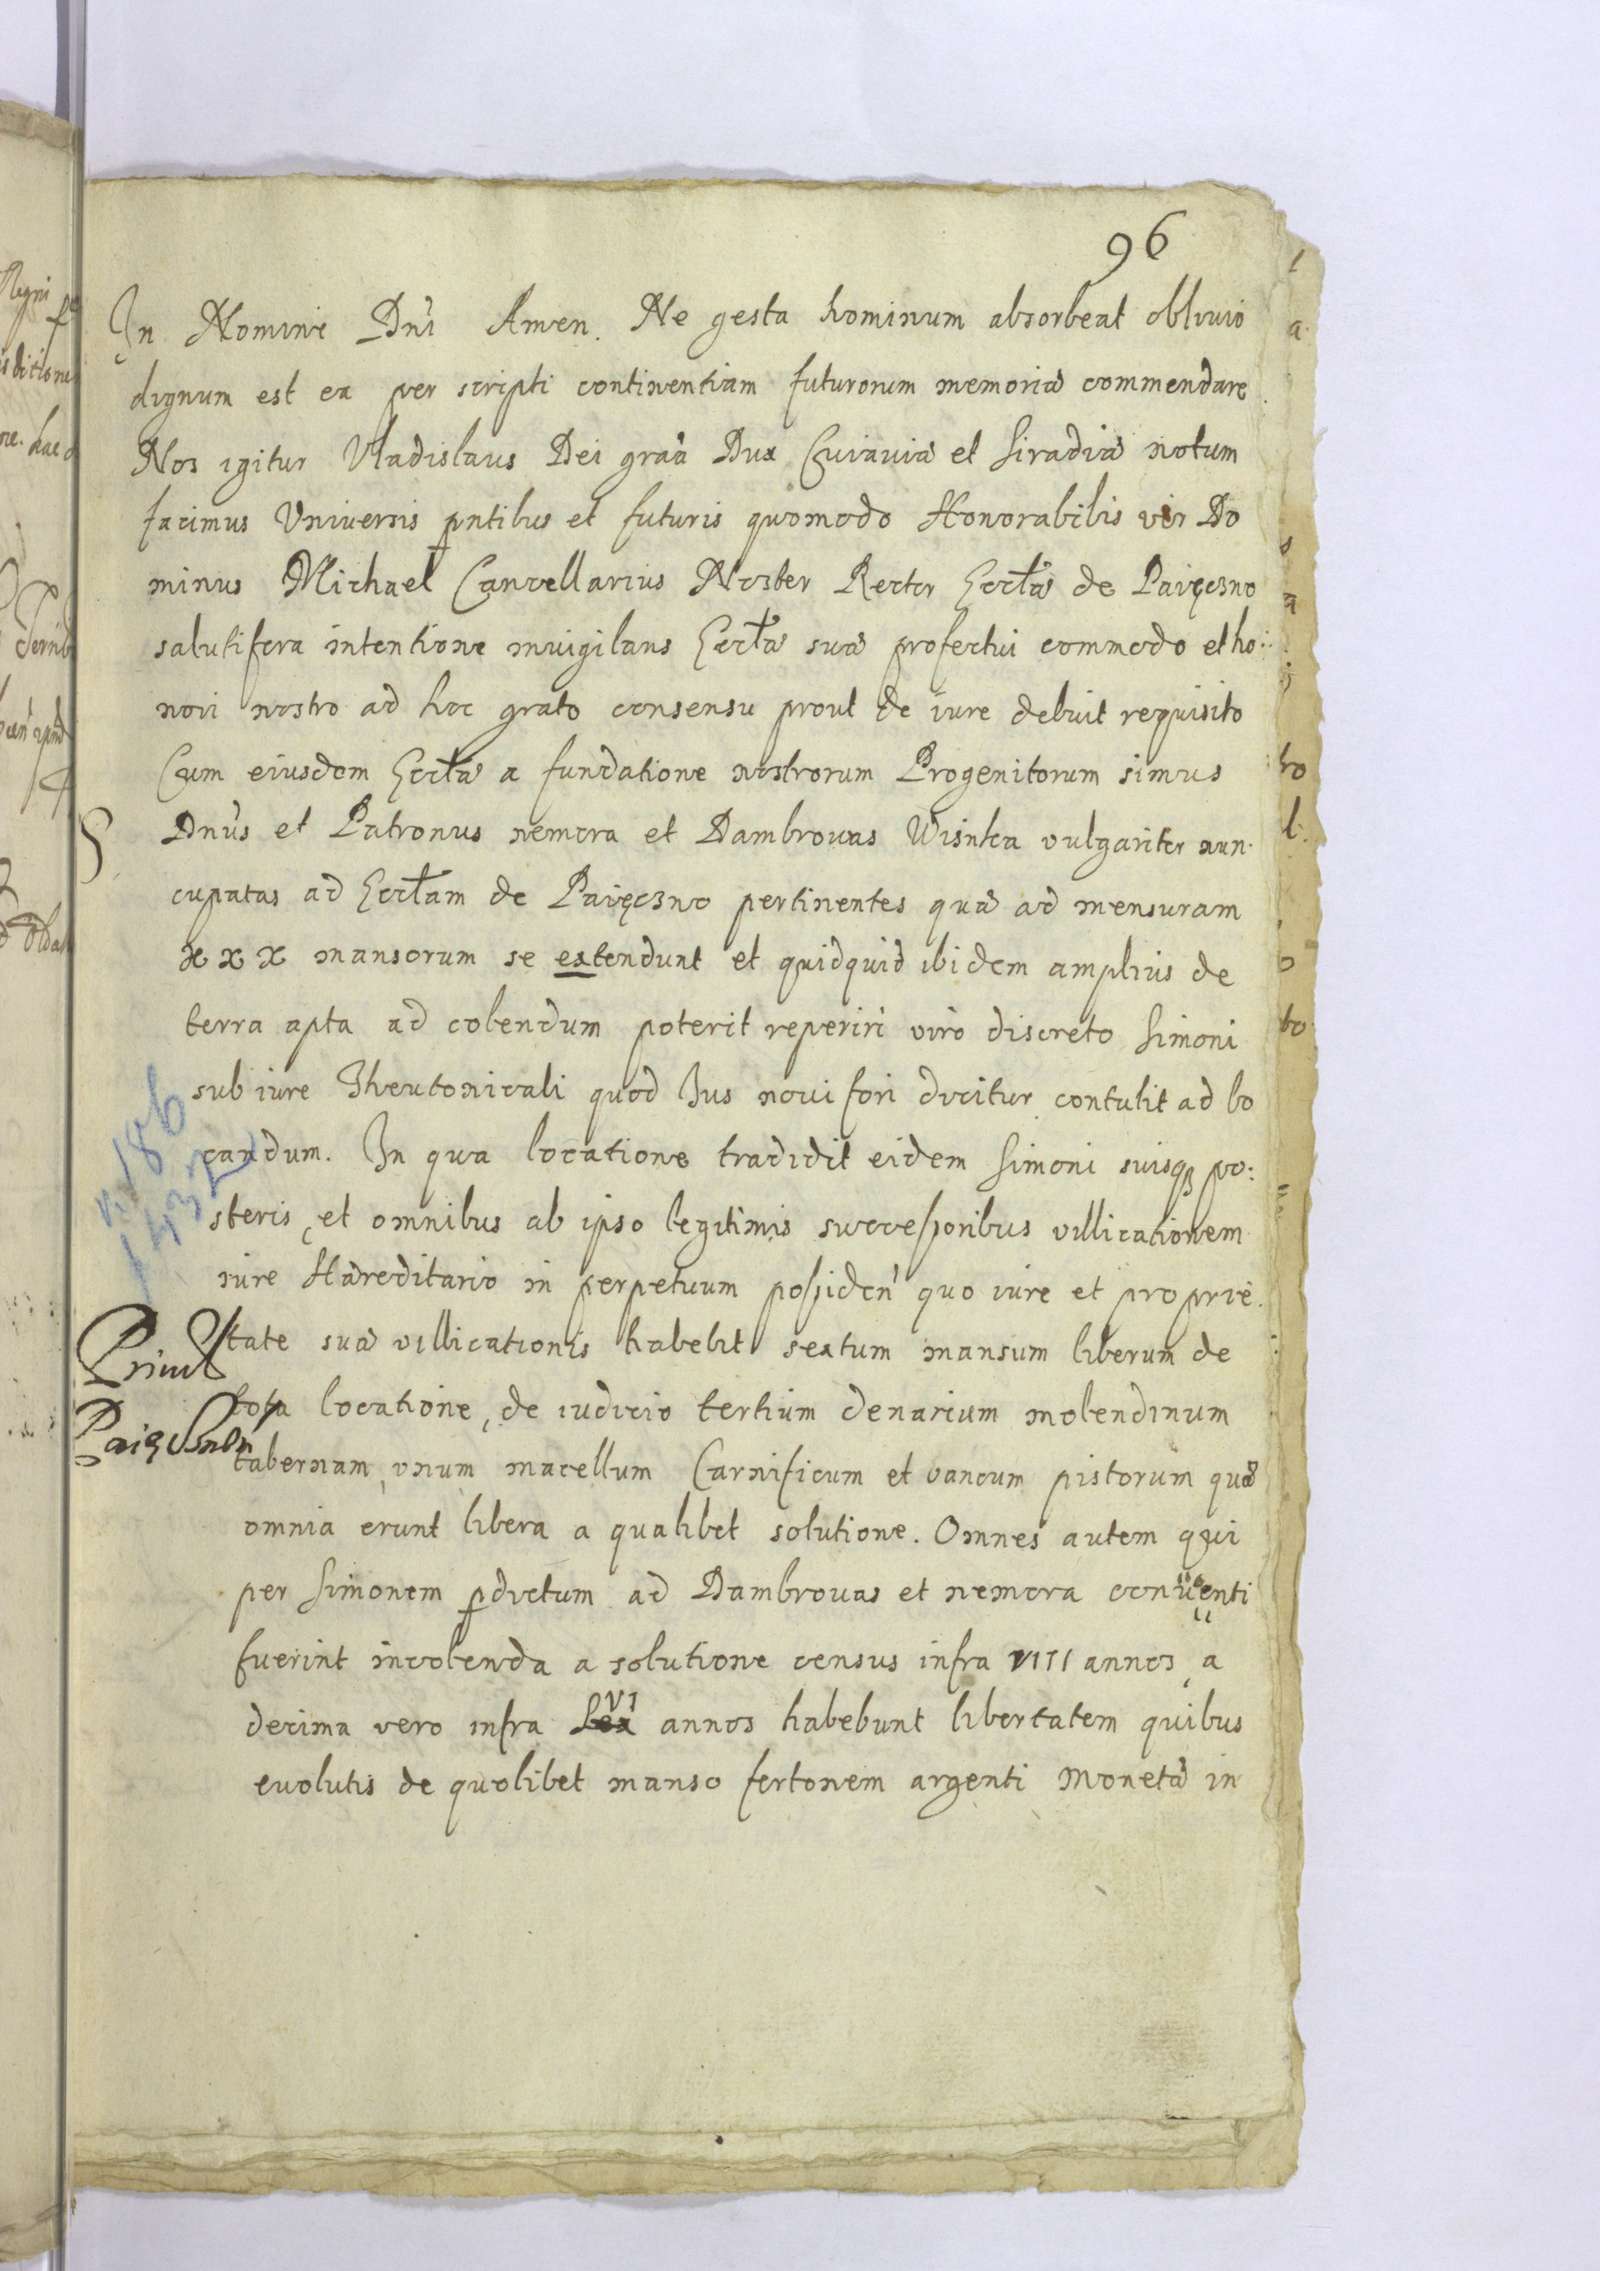 96
In Nomine Dni Amen. Ne gesta hominum absorbeat obliuio
dignum est ea per scripti continentiam futurorum memoriæ commendare
Nos igitur Vladislaus Dei graa Dux Cuiauiæ et Siradiæ notum
facimus Vniuersis pntibus et futuris quomodo Honorabilis vir Do
minus Michael Cancellarius Noster Rector Eccłæ de Paięczno
salutifera intentione inuigilans Eccłæ suæ profectui commodo et ho:
nori nostro ad hoc grato consensu prout de iure debuit requisito
Cum eiusdem Eccłæ a fundatione nostrorum Progenitorum simus
Dnus et Patronus nemora et Dambrouas Wisnka vulgariter nun
cupatas ad Eccłam de Paięczno pertinentes quæ ad mensuram
x x x mansorum se extendunt et quidquid ibidem amplius de
terra apta ad colendum poterit reperiri viro discreto Simoni
sub iure Theutonicali quod Ius noui fori dicitur contulit ad lo
candum. In qua locatione tradidit eidem Simoni suisq po:
steris, et omnibus ab ipso legitimis successoribus villicationem
iure Hæreditario in perpetuum possiden quo iure et proprie.
tate suæ villicationis habebit sextum mansum liberum de
tota locatione, de iudicio tertium denarium molendinum
tabernam, vnum macellum Carnificum et vancum pistorum quæ
omnia erunt libera a qualibet solutione. Omnes autem qui
per Simonem pdictum ad Dambrouas et nemora conuenti
fuerint incolenda a solutione census infra VIII annos, a
decima vero infra VI annos habebunt libertatem quibus
euolutis de quolibet manso fertonem argenti Monetæ in
186
1432